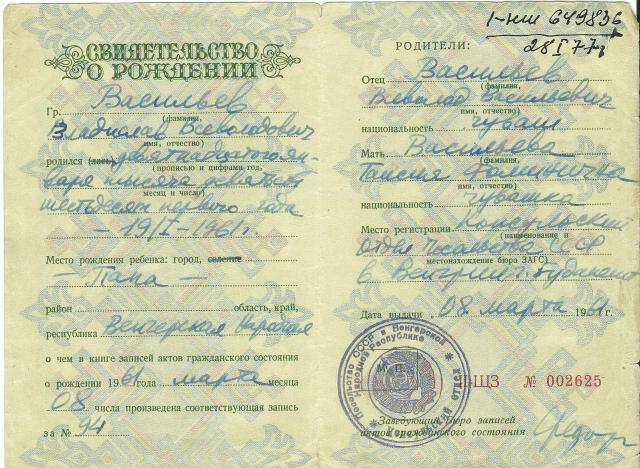 СВИДЕТЕЛЬСТВО
О РОЖДЕНИИ
Гр. Васильев
(фамилия,
Владислав Всеволодович
имя, отчество)
родился (лась)
(прописью и цифрами год,
месяц и число)
шестьдесят первого года
— 19/I – 1961 г.
Место рождения ребенка: город, селение
— Папа —
район область, край,
республика Венгерская Народная
о чем в книге записей актов гражданского состояния
о рождении 1961 года марта месяца
08 числа произведена соответствующая запись
за № 94
I-нш 649836
28 I 77
РОДИТЕЛИ:
Отец Васильев
(фамилия,
Всеволод Васильевич
имя, отчество)
национальность чуваш
Мать Васильева
(фамилия,
Таисия
имя, отчество)
национальность чувашка
Место регистрации Консульский
(наименование и
отдел Посольства СССР
местонахождение бюро ЗАГС)
в Венгрии г. Будапешт
Дата выдачи „08" марта 1961 г.
Посольство СССР в Венгерской
Народной Республике
Консульский отдел
М. П.
-ЩЗ № 002625
Заведующий бюро записей
актов гражданского состояния